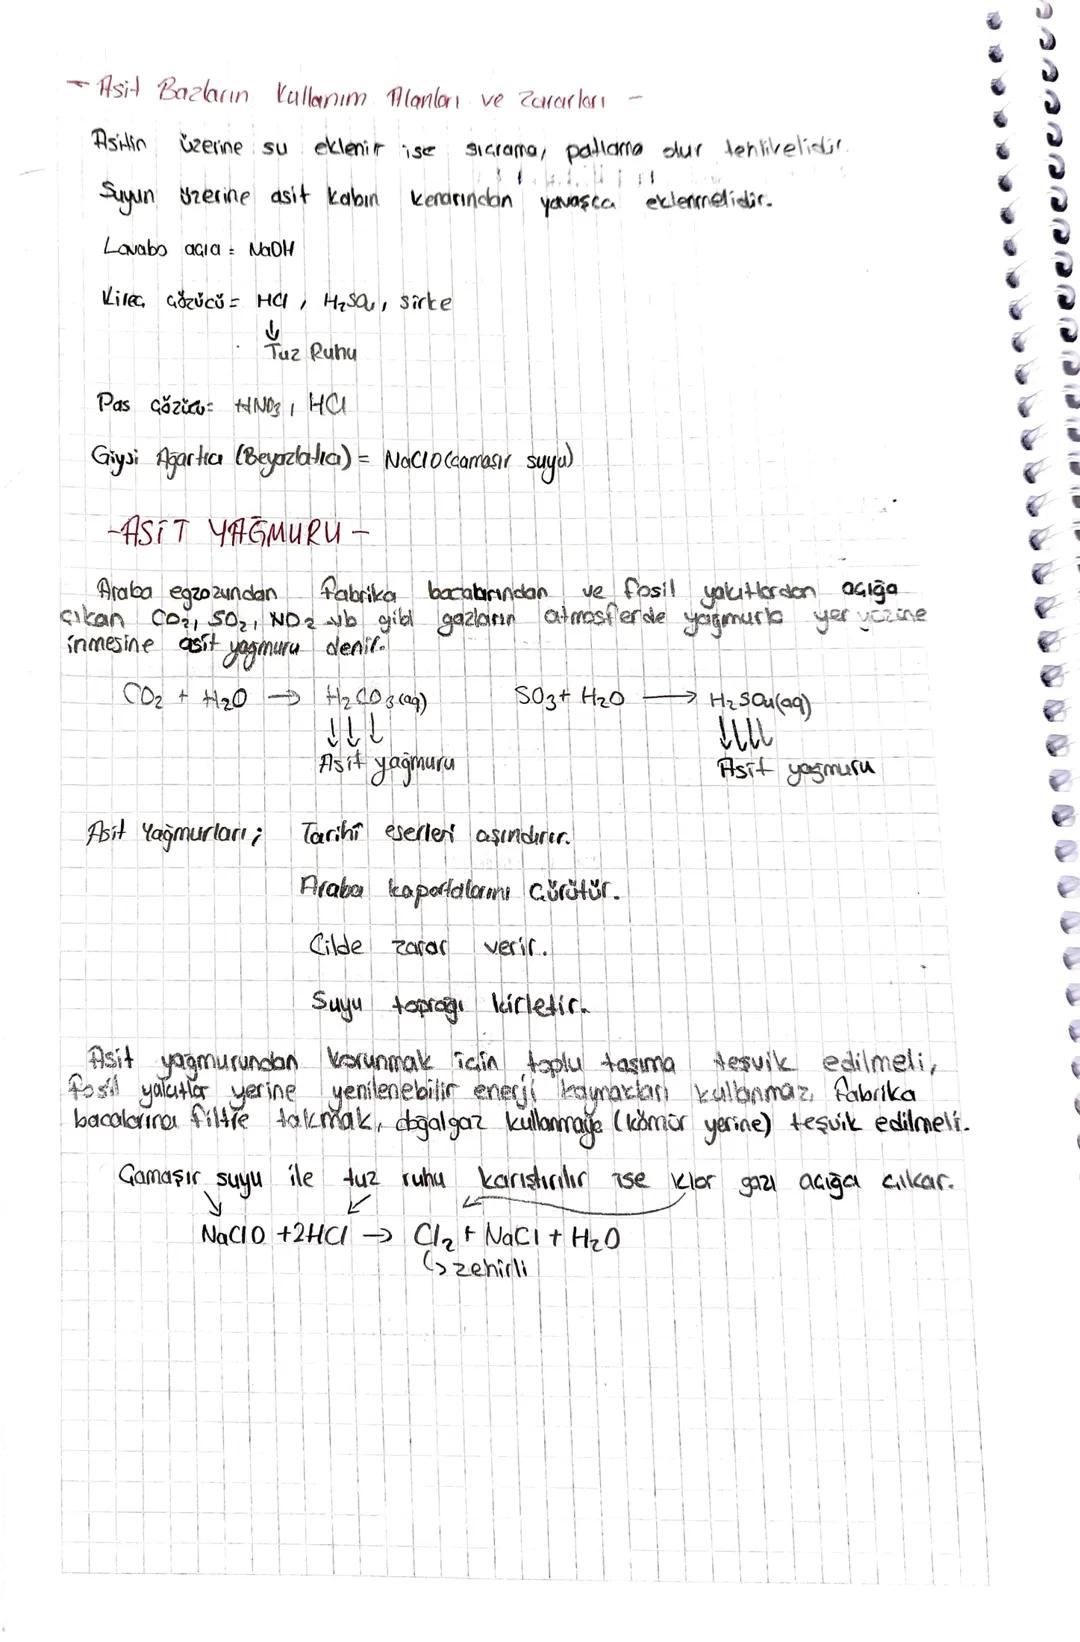 - Asit Bazların Kullanım Alanları ve Zararları -
Asitin üzerine su eklenir ise sıçrama, patlama olur tehlikelidir.
Suyun üzerine asit kabın kenarından yavaşça eklenmelidir.
Lavabo açıcı = NaOH
Kireç çözücü = HCl, H₂SO₄, sirke
↓
Tuz Ruhu
Pas Çözücü = HNO₃, HCl
Giysi Ağartıcı (Beyazlatıcı) = NaClO (çamaşır suyu)
-ASİT YAĞMURU-
Araba egzozundan fabrika bacalarından ve fosil yakıtlardan açığa
çıkan CO₂, SO₂, NO₂ vb gibi gazların atmosferde yağmurla yer yüzüne
inmesine asit yağmuru denir.
CO₂ + H₂O → H₂CO₃(aq) SO₃ + H₂O → H₂SO₄(aq)
↓↓↓ ↓↓↓↓
Asit yağmuru Asit yağmuru
Asit Yağmurları; Tarihî eserleri aşındırır.
Araba kaportalarını Çürütür.
Cilde zarar verir.
Suyu toprağı kirletir.
Asit yağmurundan korunmak için toplu taşıma teşvik edilmeli,
fosil yakıtlar yerine yenilenebilir enerji kaynakları kullanmaz, fabrika
bacalarına filtre takmak, doğalgaz kullanmaya (kömür yerine) teşvik edilmeli.
Çamaşır suyu ile tuz ruhu karıştırılır ise klor gazı açığa çıkar.
NaClO + 2HCl → Cl₂ + NaCl + H₂O
↳ zehirli